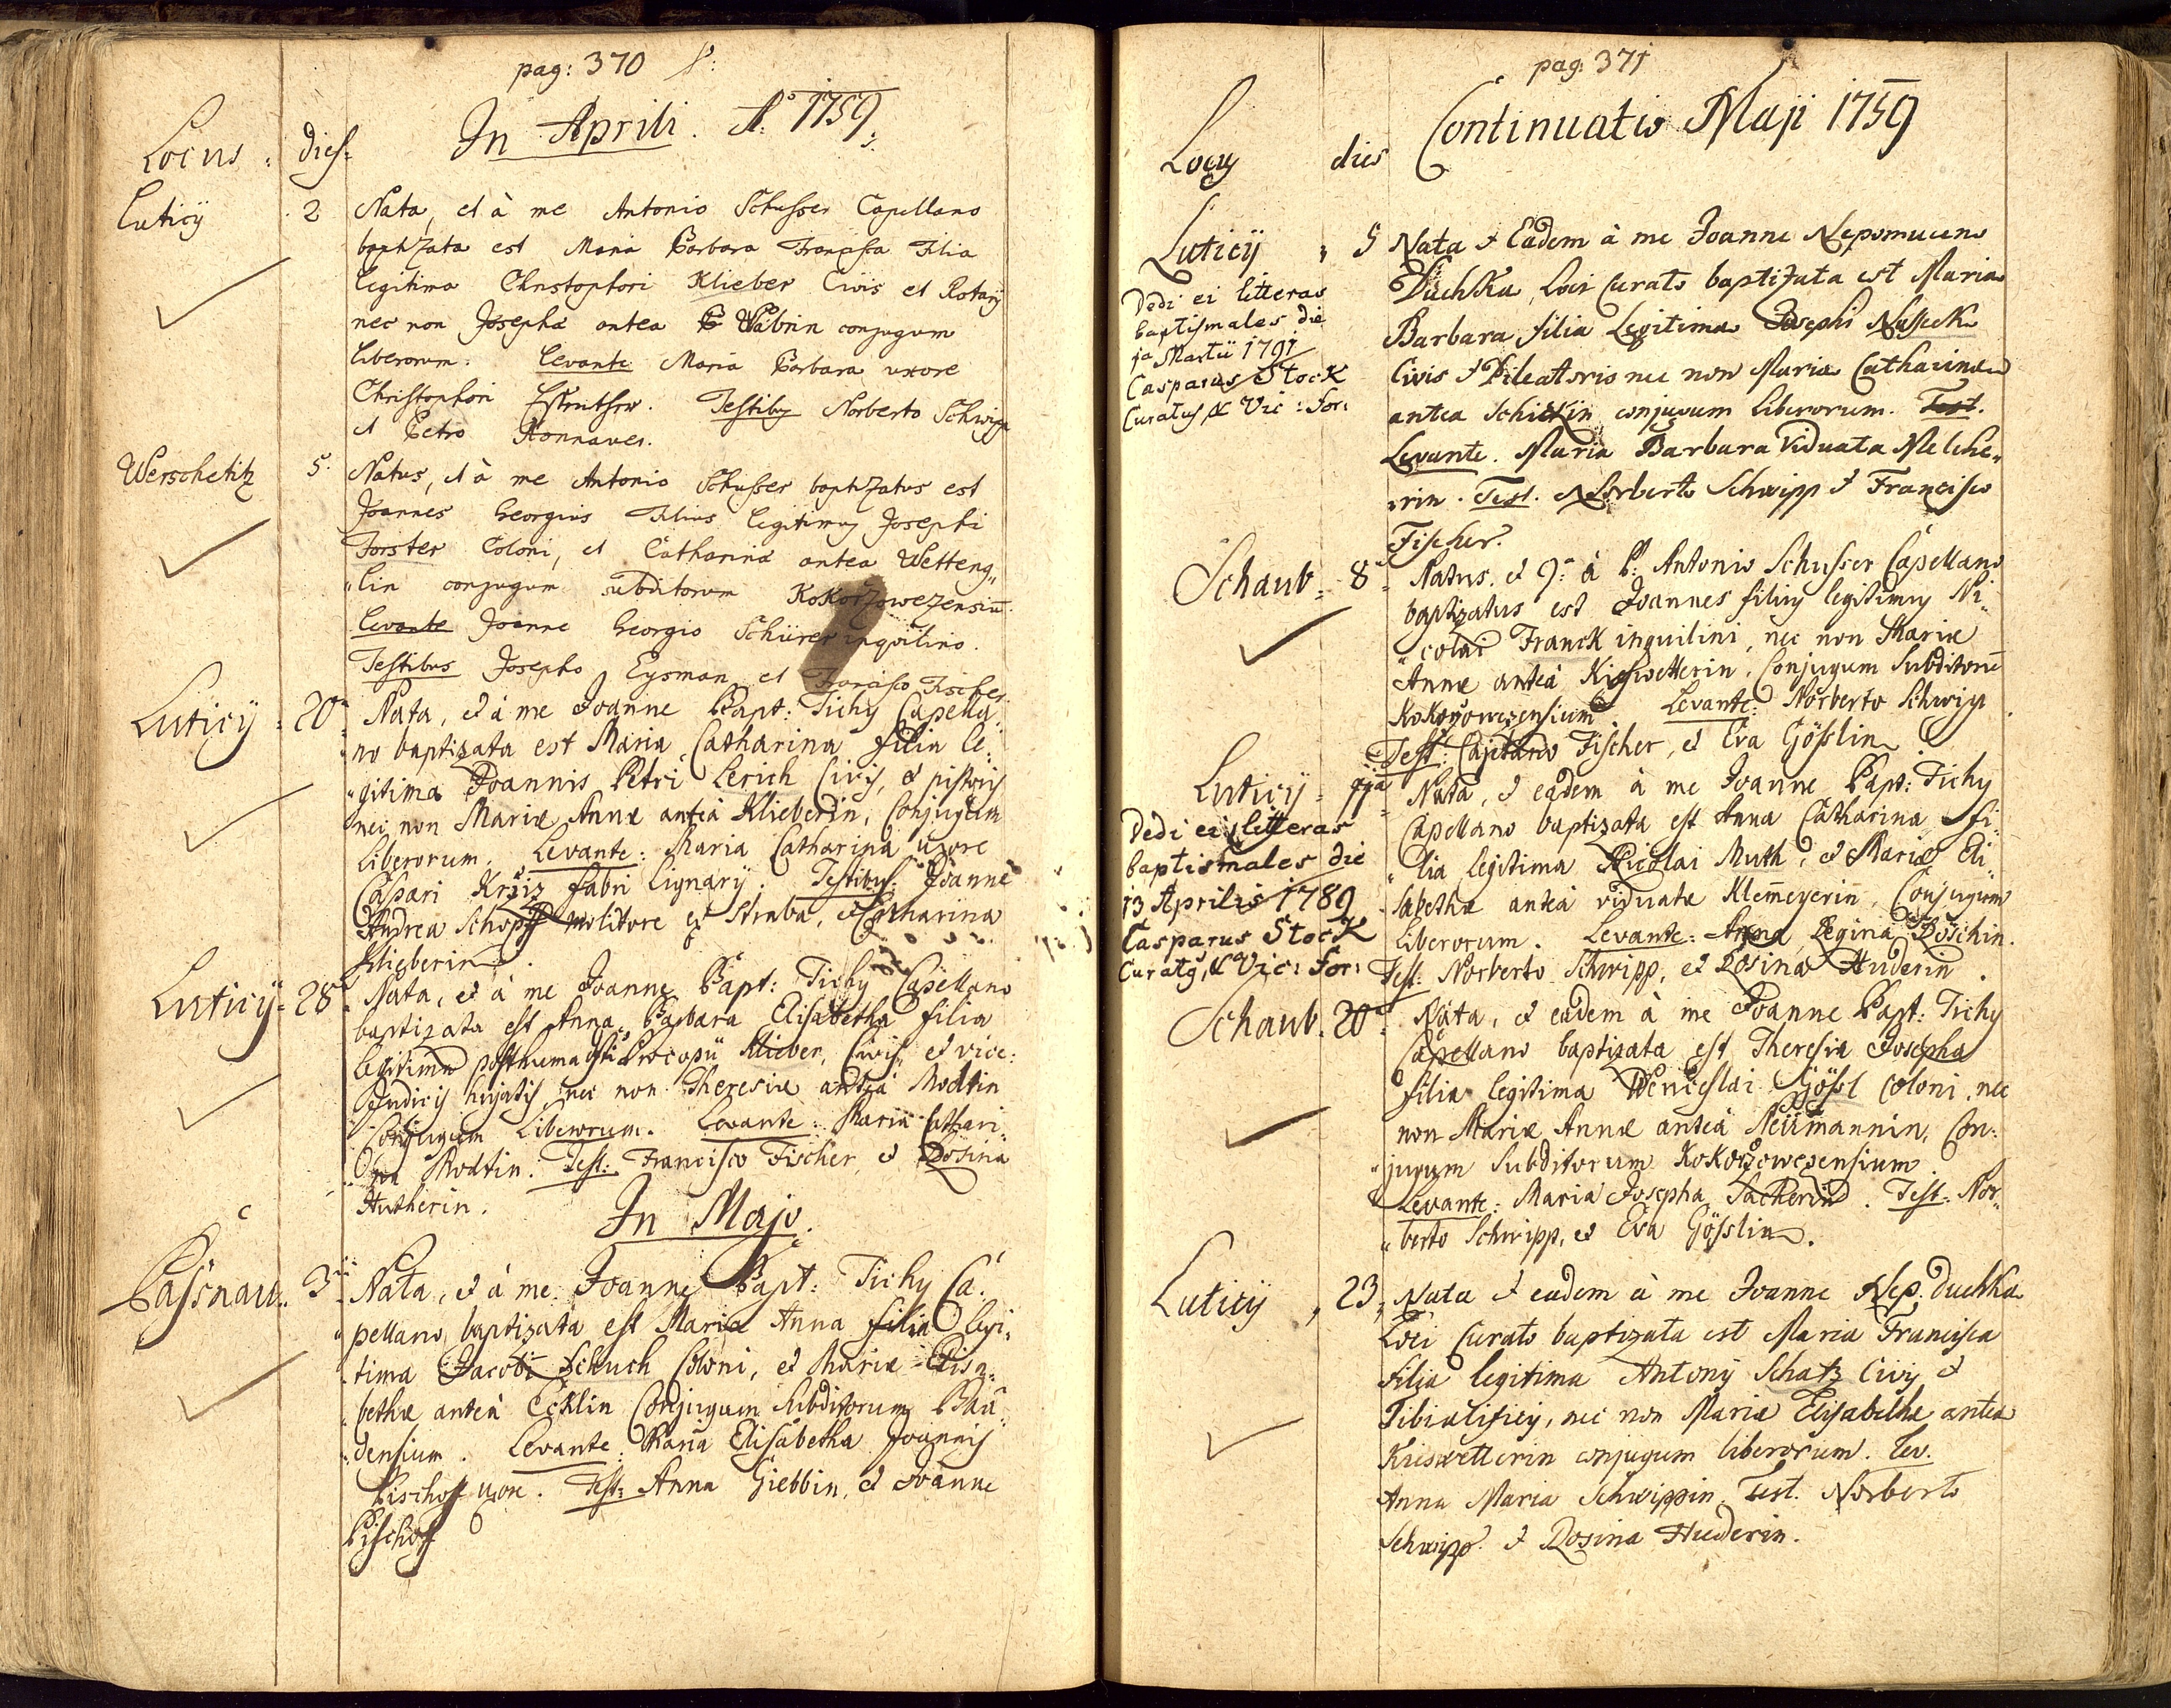 pag: 370
In Aprili. Aõ 1759.
Locus. dies.
Luticij 2 Nata, et à me Antonio Schusser Capellano
baptizata est Maria Barbara Francisca Filia
legitima Christophori Klieber Civis et Rotarij
nec non Josepha antea Wabrin conjugum
liberorum. Levante Maria Barbara uxore
Christophori. Testibus Norberto Schwipp
et Petro Konnaver.
Werschetitz 5. Natus, et à me Antonio Schusser baptizatus est
Joannes Georgius Filius legitimus Josephi
Forster Coloni, et Catharina antea Wetteng„
„lin conjugum subditorum Kokorzowezensiũ.
Levante Joanne Georgio Schürer inquilino.
Testibus Josepho Eysman et Francisco Fischer.
Luticij 20 Nata, et à me Joanne Bapt: Tichy Capella„
„no baptizata est Maria Catharina filia le„
„gitima Joannis Petri Lerich Civis, et pistoris
nec non Mariæ Annæ anteà Klieberin, Conjugum
Liberorum. Levante: Maria Catharina uxore
Caspari Kreiz fabri lignarij. Testibus: Joanne
Andrea Schopff molitore et Straba, et Catharina
Klieberin.
Luticij 28 Nata, et à me Joanne Bapt: Tichy Capellano
baptizata est Anna Barbara Elisabetha filia
legitima posthuma Procopii Klieber, Civis et vice:
Judicis hujatis nec non Theresiæ anteà Modtin
Conjugum Liberorum. Levante: Maria Cathari„
„na Modtin. Test: Francisco Fischer et Rosina
Hutherin.
In Majo.
Passnau 3 Nata, et à me Joanne Bapt: Tichy Ca„
„pellano, baptizata est Maria Anna filia legi„
„tima Jacobi Schuch Coloni, et Mariæ Elisa„
„bethæ anteà Ecklin Conjugum Subditorum Bau„
„densium. Levante: Maria Elisabetha Joannis
Bischoff uxore. Test: Anna Giebbin, et Joanne
Bischoff
pag: 371
Continuatio Maji 1759
Locus dies
Luticij 5 Nata et Eadem à me Joanne Nepomuceno
Duchka, Loci Curato baptizata est Maria
Barbara filia Legitima Josephi Nassek
Civis et Pileatoris nec non Maria Catharina
antea Schickin conjugum liberorum. Test.
Levante. Maria Barbara Viduata Melche„
„rin. Test. Norberto Schwipp et Francisco
Fischer.
Dedi ei litteras
baptismales die
1a Martii 1791
Casparus Stock
Curatus & Vic: For:
Schaub 8 Natus, et 9a à P: Antonio Schusser Capellano
baptizatus est Joannes filius legitimus Ni„
„colai Franck inquilini, nec non Mariæ
Annæ anteà Kieswetterin, Conjugum Subditorũ
Kokorzowezensium. Levante: Norberto Schwipp.
Test: Cajetano Fischer, et Eva Gösslin
Luticij 11a Nata, et eadem à me Joanne Bapt: Tichy
Capellano baptizata est Anna Catharina fi„
„lia legitima Nicolai Muth, et Mariæ Eli„
„sabethæ anteà viduatæ Klem̃eyerin, Conjugum
Liberorum. Levante: Anna Regina Röschin.
Test: Norberto Schwipp, et Rosina Huderin.
Dedi ei litteras
baptismales die
13 Aprilis 1789
Casparus Stock
Curatus & Vic: For:
Schaub. 20 Nata, et eadem à me Joanne Bapt: Tichy
Capellano baptizata est Theresia Josepha
filia legitima Wenceslai Gössl coloni, nec
non Mariæ Annæ anteà Neümannin, Con„
„jugum Subditorum Kokorzowezensium.
Levante: Maria Josepha Sacherin. Test: Nor„
„berto Schwipp, et Eva Gösslin.
Luticij 23 Nata et eadem à me Joanne Nep. Duchka
Loci Curato baptizata est Maria Francisca
Filia legitima Antonij Schatz Civis et
Tibialificis, nec non Maria Elisabetha antea
Kieswetterin conjugum liberorum. Lev.
Anna Maria Schwippin Test. Norberto
Schwipp et Rosina Huderin.